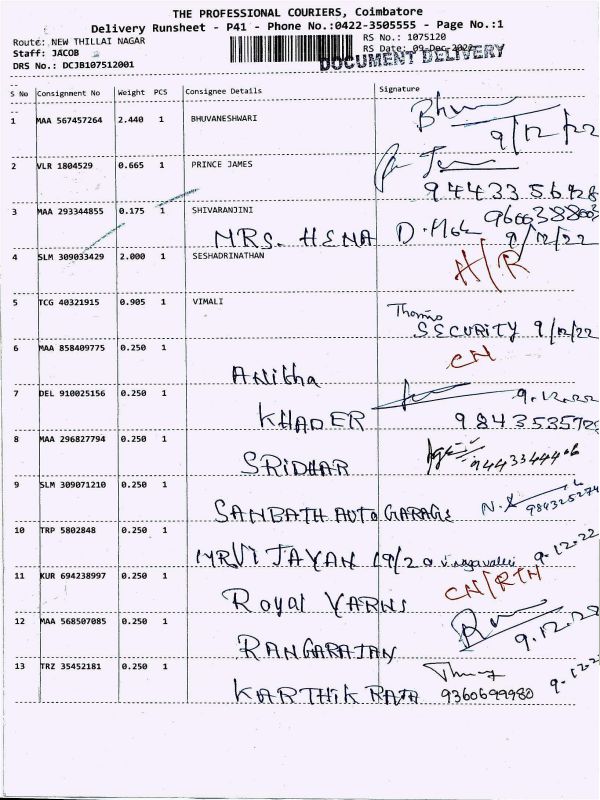 THE PROFESSIONAL COURIERS, Coimbatore
Delivery Runsheet - P41 - Phone No.:0422-3505555 - Page No.:1
Route: NEW THILLAI NAGAR RS No.: 1075120
Staff: JACOB RS Date: 09-Dec-2022
DRS No.: DCJB107512001 DOCUMENT DELIVERY
S No Consignment No Weight PCS Consignee Details Signature
1 MAA 567457264 2.440 1 BHUVANESHWARI
9/12/22
2 VLR 1804529 0.665 1 PRINCE JAMES
3 MAA 293344855 0.175 1 SHIVARANJINI
MRS. HEMA 9/12/22
4 SLM 309033429 2.000 1 SESHADRINATHAN
A/R
5 TCG 40321915 0.905 1 VIMALI
SECURITY 9/12/22
6 MAA 858409775 0.250 1 CN
Anitha
7 DEL 910025156 0.250 1 9.12.22
KHADER
8 MAA 296827794 0.250 1
SRIDHAR
9 SLM 309071210 0.250 1
10 TRP 5802848 0.250 1
MR VIJAYAN 9.12.22
11 KUR 694238997 0.250 1 CN/RTN
Royal YARNS
12 MAA 568507085 0.250 1
RANGARAJAN
13 TRZ 35452181 0.250 1
KARTHIK RAJA 9360699980